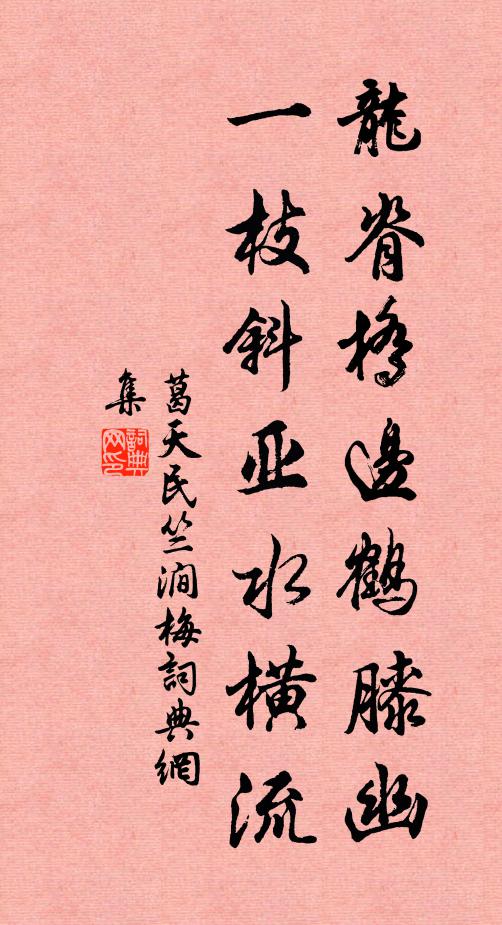 龍脊橋邊鶴膝幽
一枝斜亚水橫流
葛天民竺澗梅詞典網
集
詞典网印